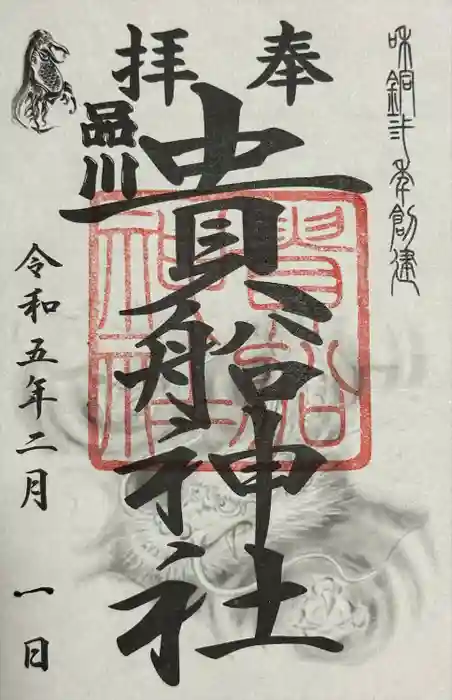 和銅弐年創建
奉拝
品川
貴船神社
貴船
神社
令和五年二月一日